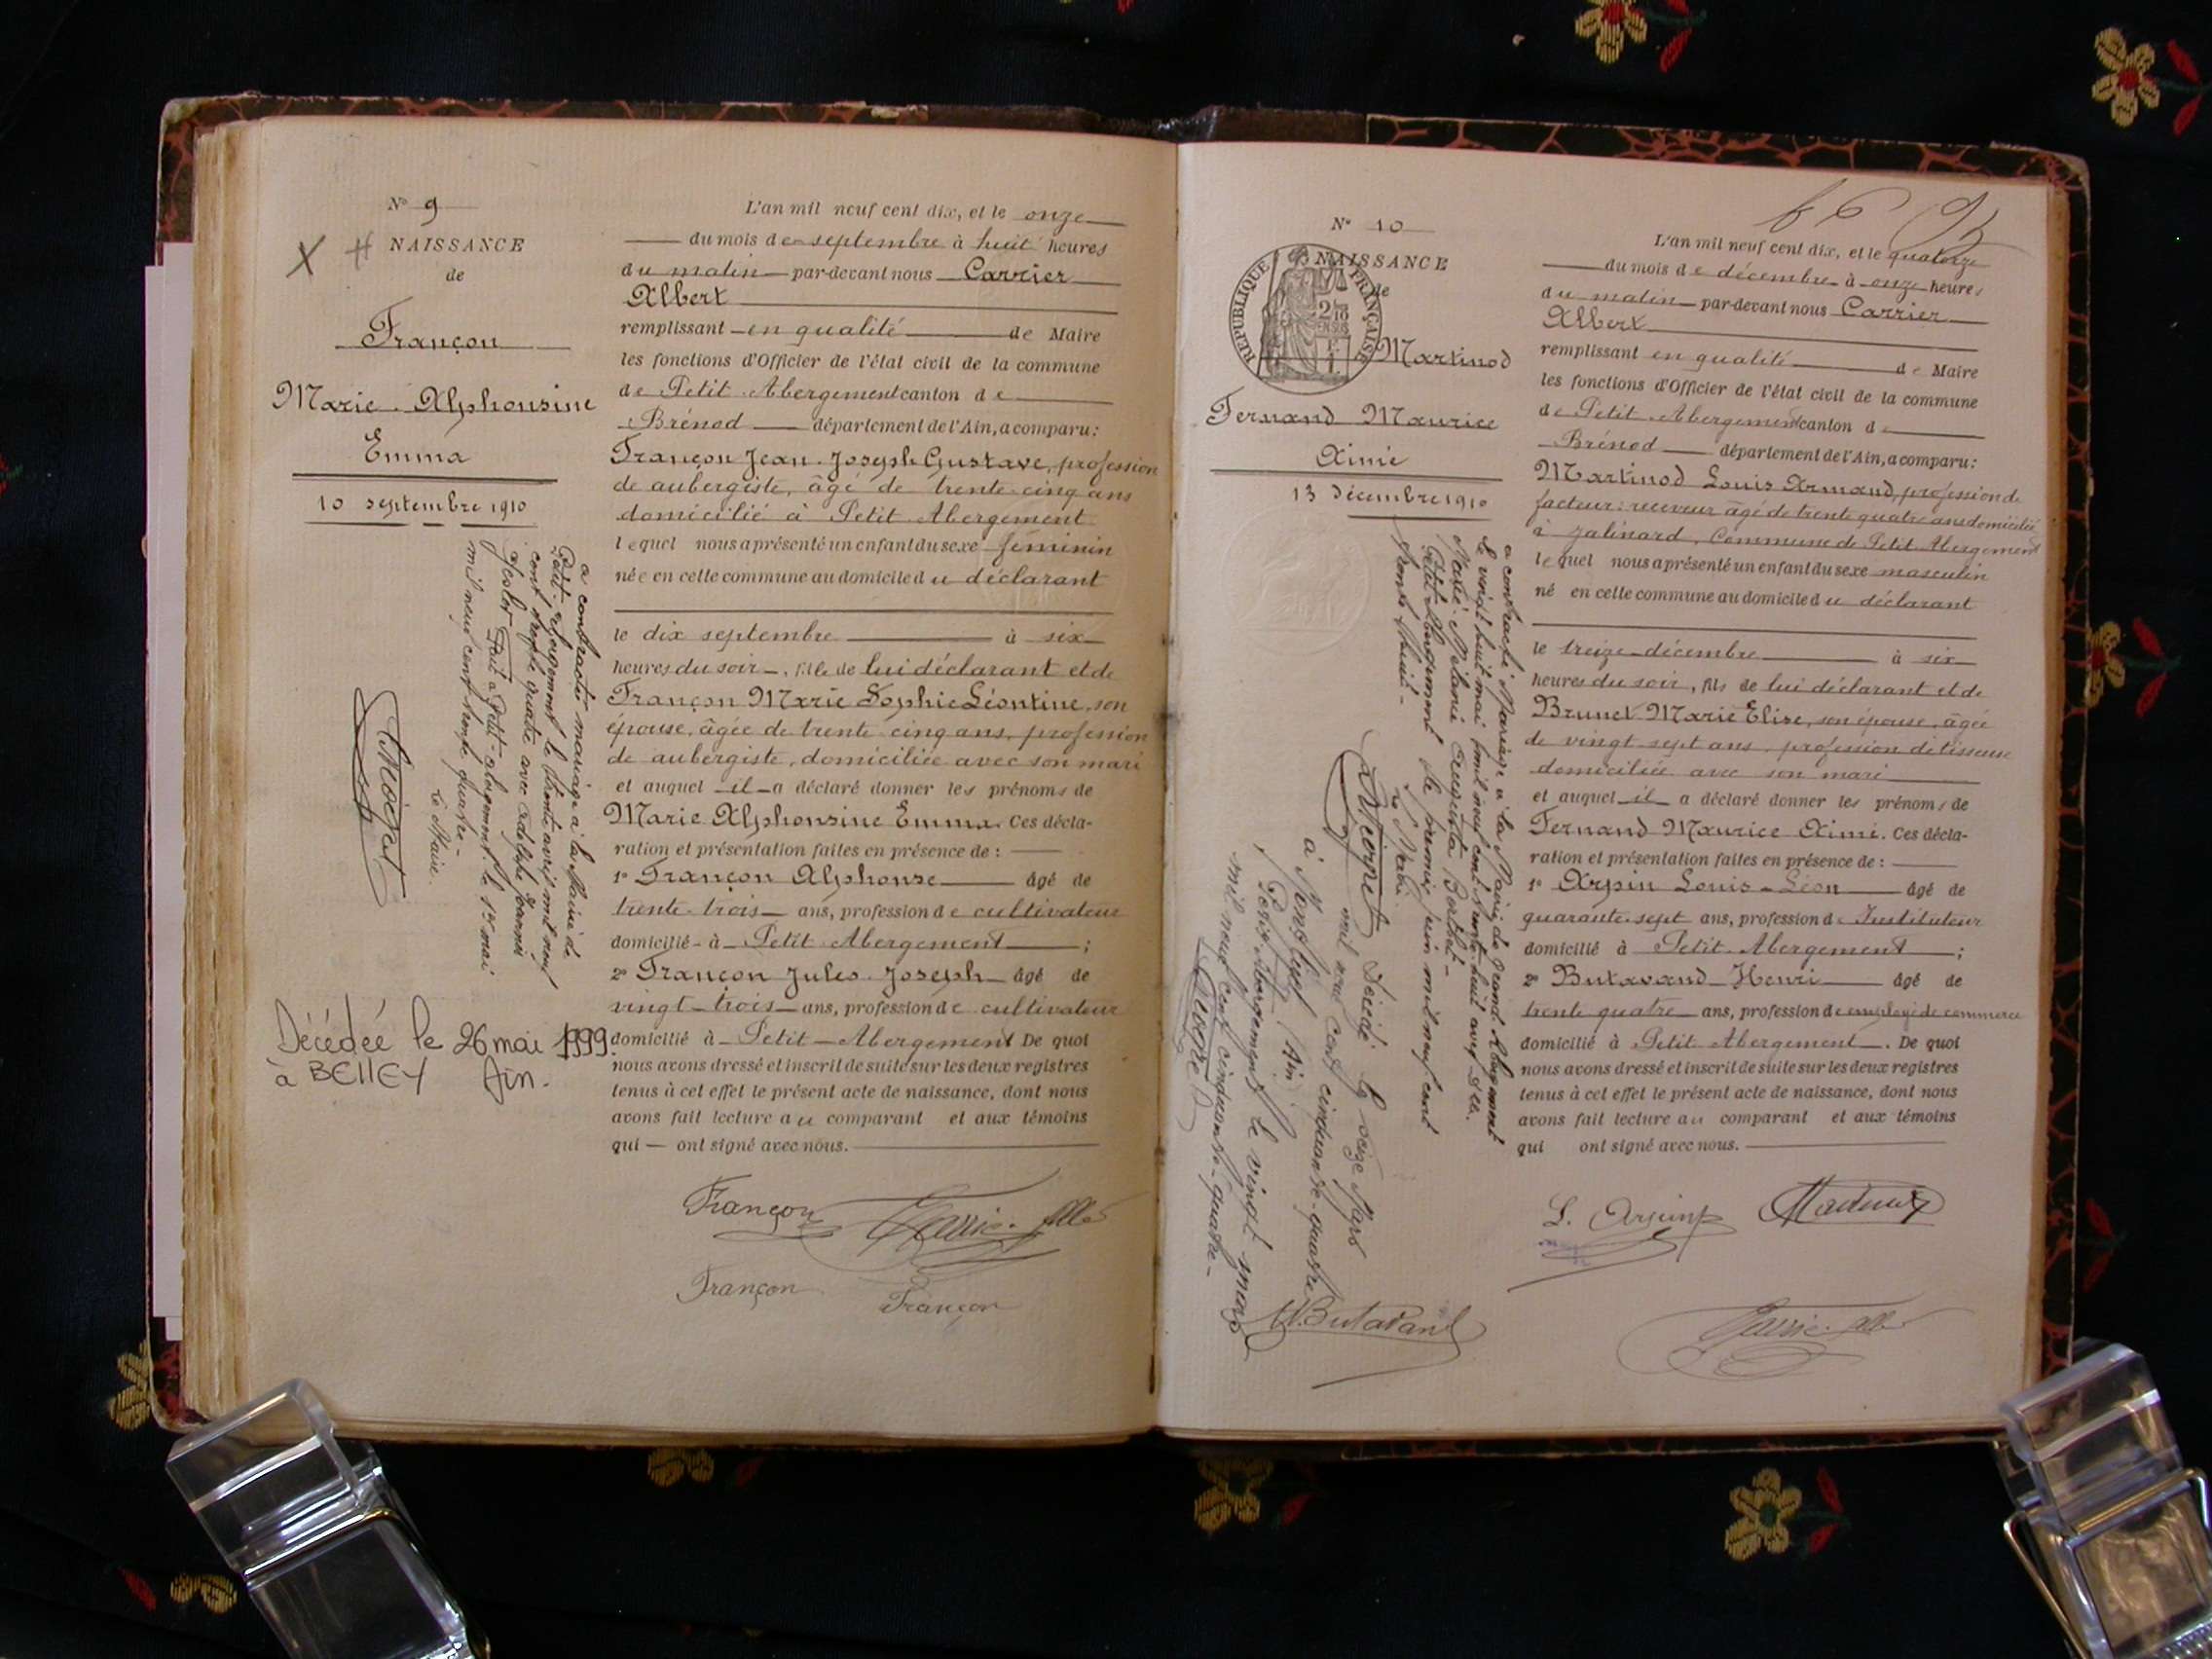 N° 9
NAISSANCE
de
Françon
Marie Alphonsine
Emma
10 septembre 1910
a contracté mariage à la Mairie de
Petit-Abergement le trente avril mil neuf
cent trente quatre avec Adolphe Joannès
Fait à Petit-abergement le 1er mai
mil neuf cent trente quatre -
Le Maire.
Décédée le 26 mai 1999
à BELLEY Ain.
L'an mil neuf cent dix, et le onze
du mois de septembre à huit heures
du matin par-devant nous Carrier
Albert
remplissant en qualité de Maire
les fonctions d'Officier de l'état civil de la commune
de Petit-Abergement canton de
Brénod département de l'Ain, a comparu:
Françon Jean-Joseph Gustave, profession
de aubergiste, âgé de trente-cinq ans
domicilié à Petit-Abergement
lequel nous a présenté un enfant du sexe féminin
née en cette commune au domicile du déclarant
le dix septembre à six
heures du soir, fille de lui déclarant et de
Françon Marie Sophie Léontine, son
épouse, âgée de trente-cinq ans, profession
de aubergiste, domiciliée avec son mari
et auquel il a déclaré donner les prénoms de
Marie Alphonsine Emma. Ces décla-
ration et présentation faites en présence de :
1° Françon Alphonse âgé de
trente-trois ans, profession de cultivateur
domicilié à Petit-Abergement ;
2° Françon Jules-Joseph âgé de
vingt-trois ans, profession de cultivateur
domicilié à Petit-Abergement De quoi
nous avons dressé et inscrit de suite sur les deux registres
tenus à cet effet le présent acte de naissance, dont nous
avons fait lecture au comparant et aux témoins
qui — ont signé avec nous.
Françon
Françon Françon
N° 10
NAISSANCE
de
RÉPUBLIQUE FRANÇAISE
Martinod
Fernand Maurice
Aimé
13 Décembre 1910
a contracté Mariage à la Mairie de Grand Abergement
le vingt huit mai mil neuf cent trente huit avec Dlle.
Marie Mélanie Augusta
Petit Abergement le premier juin mil neuf cent
trente huit -
Le Maire
Décédé le seize Mars
mil neuf cent cinquante-quatre
à (Ain)
Petit-Abergement le vingt mars
mil neuf cent cinquante-quatre -
L'an mil neuf cent dix, et le quatorze
du mois de décembre à onze heures
du matin par-devant nous Carrier
Albert
remplissant en qualité de Maire
les fonctions d'Officier de l'état civil de la commune
de Petit-Abergement canton de
Brénod département de l'Ain, a comparu:
Martinod Louis Armand, profession de
facteur-receveur âgé de trente quatre ans domicilié
à Jalinard, Commune de Petit-Abergement
lequel nous a présenté un enfant du sexe masculin
né en cette commune au domicile du déclarant
le treize décembre à six
heures du soir, fils de lui déclarant et de
Brunet Marie Elise, son épouse, âgée
de vingt sept ans, profession de tisseuse
domiciliée avec son mari
et auquel il a déclaré donner les prénoms de
Fernand Maurice Aimé. Ces décla-
ration et présentation faites en présence de :
1° Arpin Louis-Léon âgé de
quarante-sept ans, profession de Instituteur
domicilié à Petit-Abergement ;
2° Butavand Henri âgé de
trente quatre ans, profession de employé de commerce
domicilié à Petit Abergement. De quoi
nous avons dressé et inscrit de suite sur les deux registres
tenus à cet effet le présent acte de naissance, dont nous
avons fait lecture au comparant et aux témoins
qui ont signé avec nous.
L. Arpin
H. Butavand